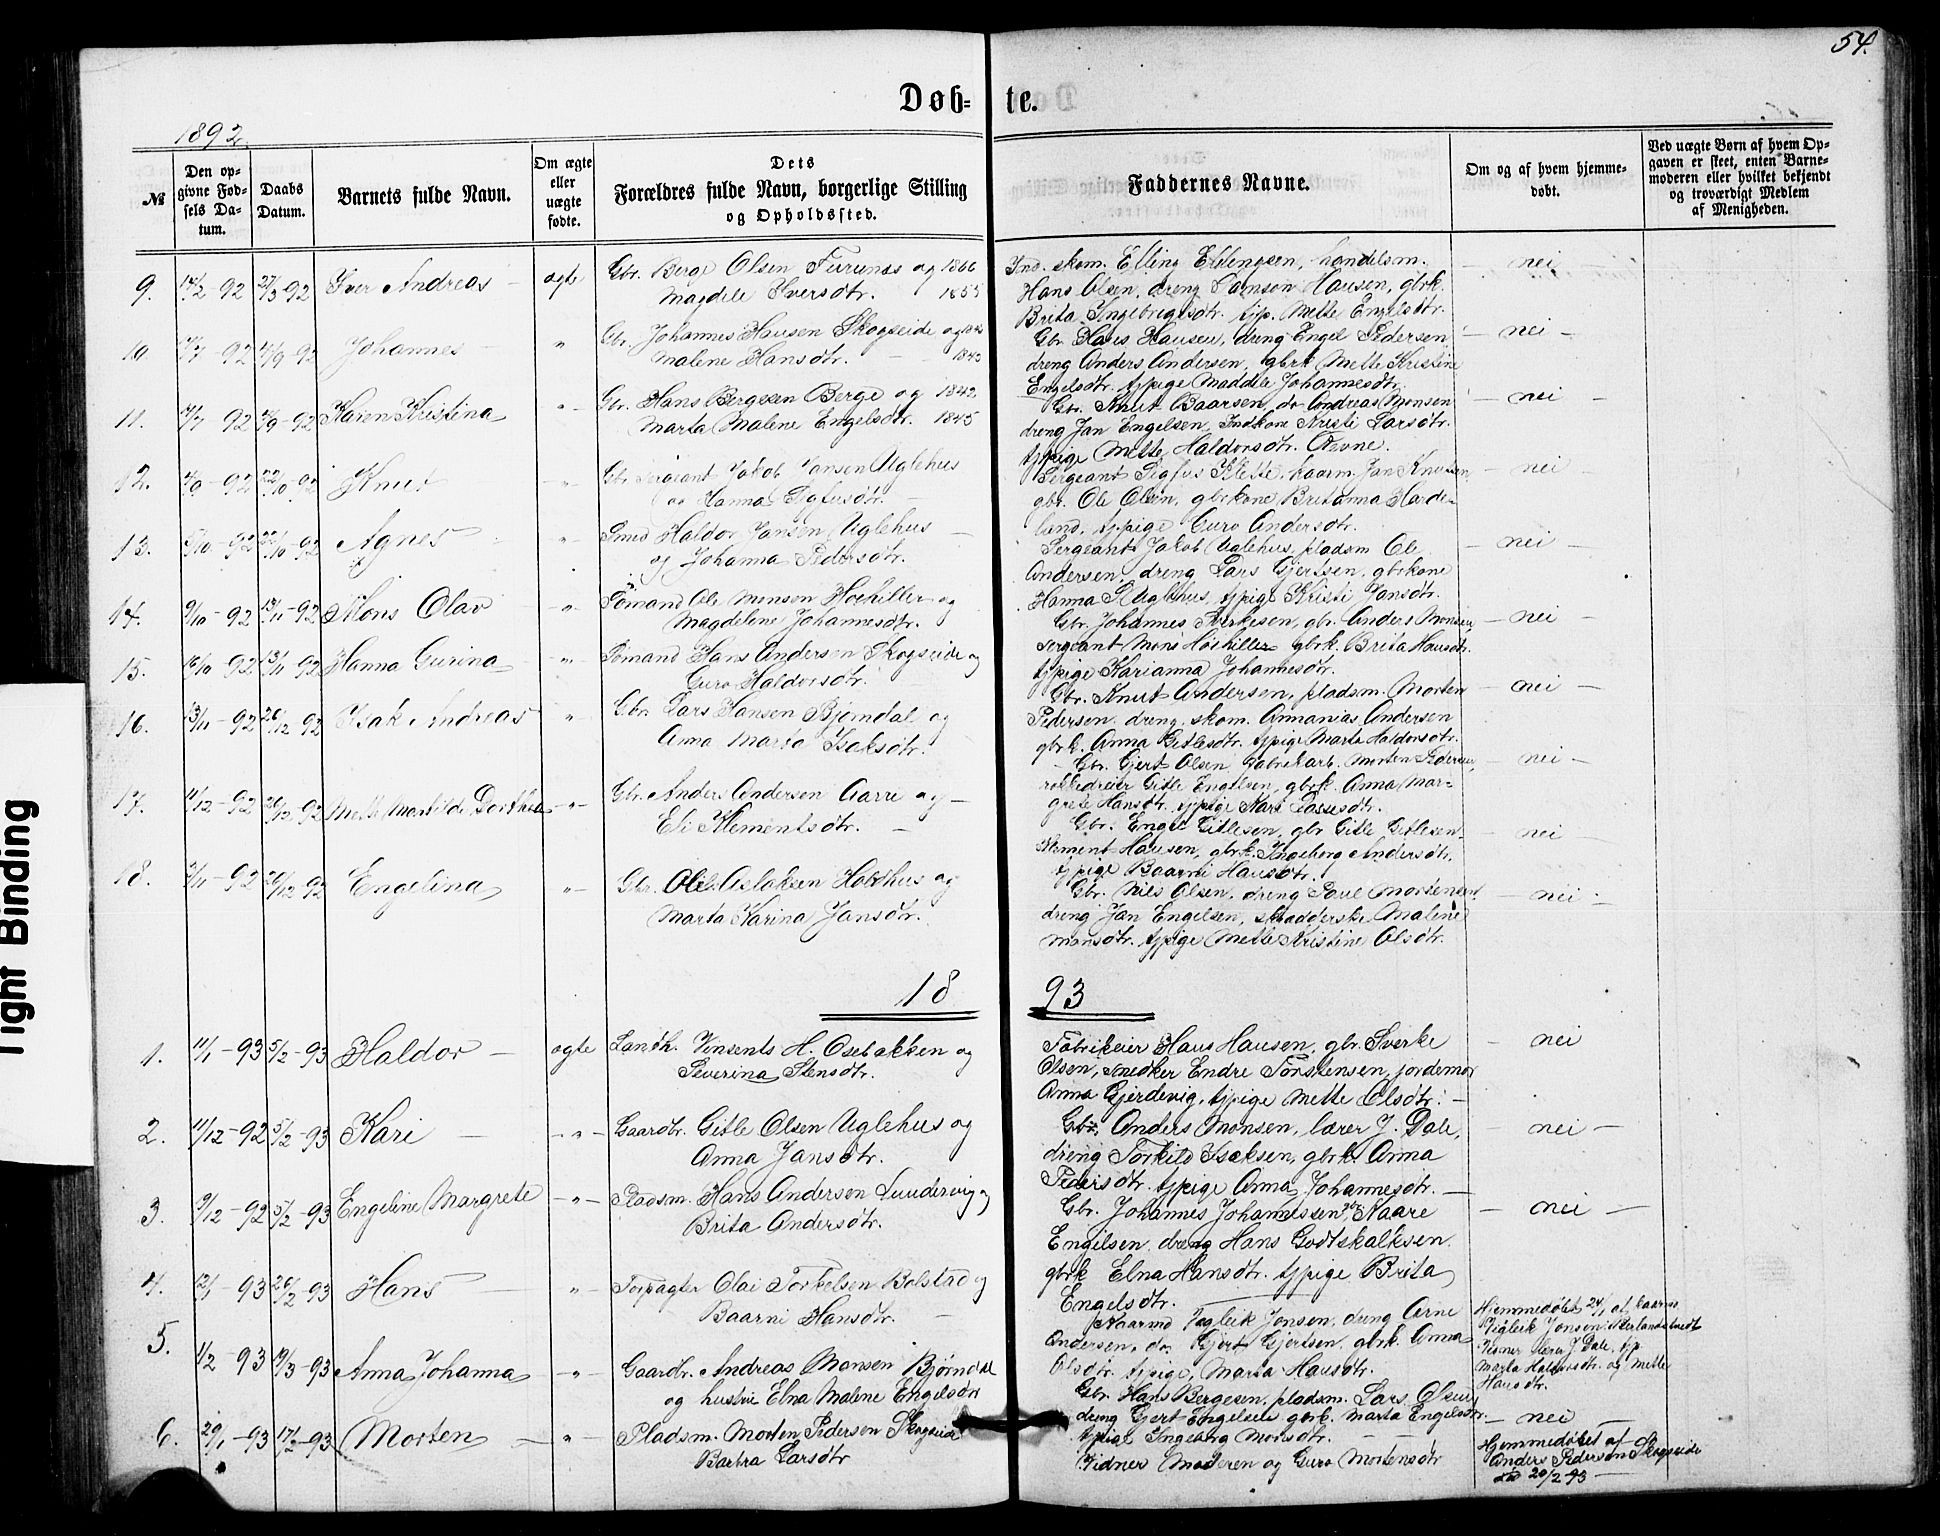 54.
Døb-te.
1892.
№
Den opgivne Fødsels Datum.
Daabs Datum.
Barnets fulde Navn.
Om ægte eller uægte fødte.
Dets Forældres fulde Navn, borgerlige Stilling og Opholdssted.
Faddernes Navne.
Om og af hvem hjemmedøbt.
Ved uægte Børn af hvem Opgaven er skeet, enten Barnemoderen eller hvilket bekjendt og troværdigt Medlem af Menigheden.
9. 14/2-92 27/3-92 Iver Andreas - ægte Gbr. Berge Olsen Furunæs og 1866
Magdele Iversdtr. 1855
Ind. skom. Elling Ellingsen, handelsm.
Hans Olsen, dreng Samson Hansen, gbrk.
Brita Ingebrigtsdtr. tjp. Mette Engelsdtr.
- nei -
10 92 /9-92 Johannes - " Gbr. Johannes Hansen Skogseide og
Malene Hansdtr. - 1843
Gbr. Hans Hansen, dreng Engel Pedersen
dreng Anders Andersen, gbrk Mette Kristine
Engelsdtr. tjpige Maddele Johannesdtr.
- nei -
11. /7 92 /9-92 Karen Kristina " Gbr. Hans Bergesen Berge og 1842
Marta Malene Engelsdtr. 1845
Gbr. Knut Baarsen, do Andreas Monsen
dreng Jan Engelsen, Indkone Kristi Larsdtr.
tjpige Mette Haldorsdtr. Revne.
- nei -
12. /9-92 22/10-92 Knut " Gbr Sergeant Jakob Jansen Uglehus
og Hanna Sigfusdtr. -
Sergeant Sigfus Mette, kaarm. Jan Knutsen
gbr. Ole Olsen, gbrkone Britanna Hardeland, tjpige Guro Andersdtr.
- nei -
13. /10-92 22/10-92 Agnes " Smed Haldor Jansen Uglehus -
og Johanna Pedersdtr.
Sergeant Jakob Uglehus, pladsm Ole
Andersen, dreng Lars Gjertsen, gbrkone
Hanna S. Uglehus, tjpige Kristi Jansdtr.
- nei -
14. 9/10-92 13/11-92 Mons Olav - " Sømand Ole Monsen Høihiller og
Magdelene Johannesdtr.
Gbr. Johannes Sverkesen, gbr. Anders Monsen,
sergeant Mons Høihiller gbrk. Brita Hansdtr.
tjpige Karianna Johannesdtr.
- nei -
15. 16/10-92 13/11-92 Hanna Gurina " Sømand Hans Andersen Skogseide og
Guro Haldorsdtr.
Gbr. Knut Andersen, pladsm. Morten
Pedersen, dreng, skom. Annanias Andersen
gbrk. Anna Gitlesdtr. tjpige Marta Haldorsdtr.
- nei -
16. 13/11-92 26/12-92 Isak Andreas " Gbr. Lars Hansen Bjørndal og
Anna Marta Isaksdtr.
Gbr. Gjert Olsen, fabrikarb. Morten Pedersen,
rokkedreier Gitle Engelsen, gbrk. Anna Margrete Hansdtr. tjpige Kari Lassesdtr.
- nei -
17. 4/12-92 26/12-92 Mette Mathilde Dorthea " Gbr. Anders Andersen Aarre og -
Eli Klementsdtr. -
Gbr. Engel Gitlesen, gbr Gitle Gitlesen
Klement Hansen, gbrk. Ingeborg Andersdtr.
tjpige Baarni Hansdtr.
- nei -
18. /11-92 26/12-92 Engelina " Gbr. Ole Aslaksen Holdhus og
Marta Karina Jansdtr.
Gbr. Nils Olsen, dreng Poul Mortensen
dreng Jan Engelsen, skrædderske Malene
Monsdtr. tjpige Mette Kristine Olsdtr.
- nei -
18 93
1. 11/1-93 5/2-93 Haldor - ægte Landh. Vinsents H. Osebakken og
Severina Stensdtr.
Fabrikeier Hans Hansen, gbr. Sverke
Olsen, snedker Endre Torstensen, jordemor
Anna Gjerdevig, tjpige Mette Olsdtr. -
- nei
2. 11/12-92 5/2-93 Kari - " Gaardbr. Gitle Olsen Uglehus og
Anna Jansdtr.
Gbr. Anders Monsen, lærer J. Dale,
dreng Torkild Isaksen, gbrk. Anna
Pedersdtr. tjpige Anna Johannesdtr. -
- nei -
3. 9/12-92 5/2-93 Engeline Margrete " Pladsm. Hans Andersen Lundervig og
Brita Andersdtr.
Gbr. Johannes Johannessen, gbr Kaare
Engelsen, dreng Hans Godtskalksen.
gbrk Elna Hansdtr. tjpige Brita
Engelsdtr.
- nei -
4. /1 93 26/2-93 Hans - " Forpagter Olai Torkelsen Bolstad og
Baarni Hansdtr. -
Kaarmd Vigleik Jonsen, dreng Arne
Andersen, do Gjert Gjertsen, gbrk. Anna
Olsdtr. tjpige, Marta Hansdtr.
Hjemmedøbt 24/1 af kaarm.
Vigleik Jonsen
Vidner lærer J Dale, tjp
Marta Haldorsdtr. og Mette
Hansdtr.
5. 1/2-93 19/3-93 Anna Johanna " Gaardbr. Andreas Monsen Bjørndal
og hustru Elna Malene Engelsdtr
Gbr. Hans Bergesen, pladsm. Lars Olsen,
dreng Gjert Engelsen gbrk. Marta Engelsdtr.
tjpige Ingeborg Monsdtr.
- nei -
6. 29/1-93 17/2-93 Morten - " Pladsm. Morten Pedersen Skogseide
Barbra Larsdtr
Vidner Moderen og Guro Mortensdtr
Hjemmedøbt af
Anders Pederson Skogseide
20/2 93 -
Tight Binding